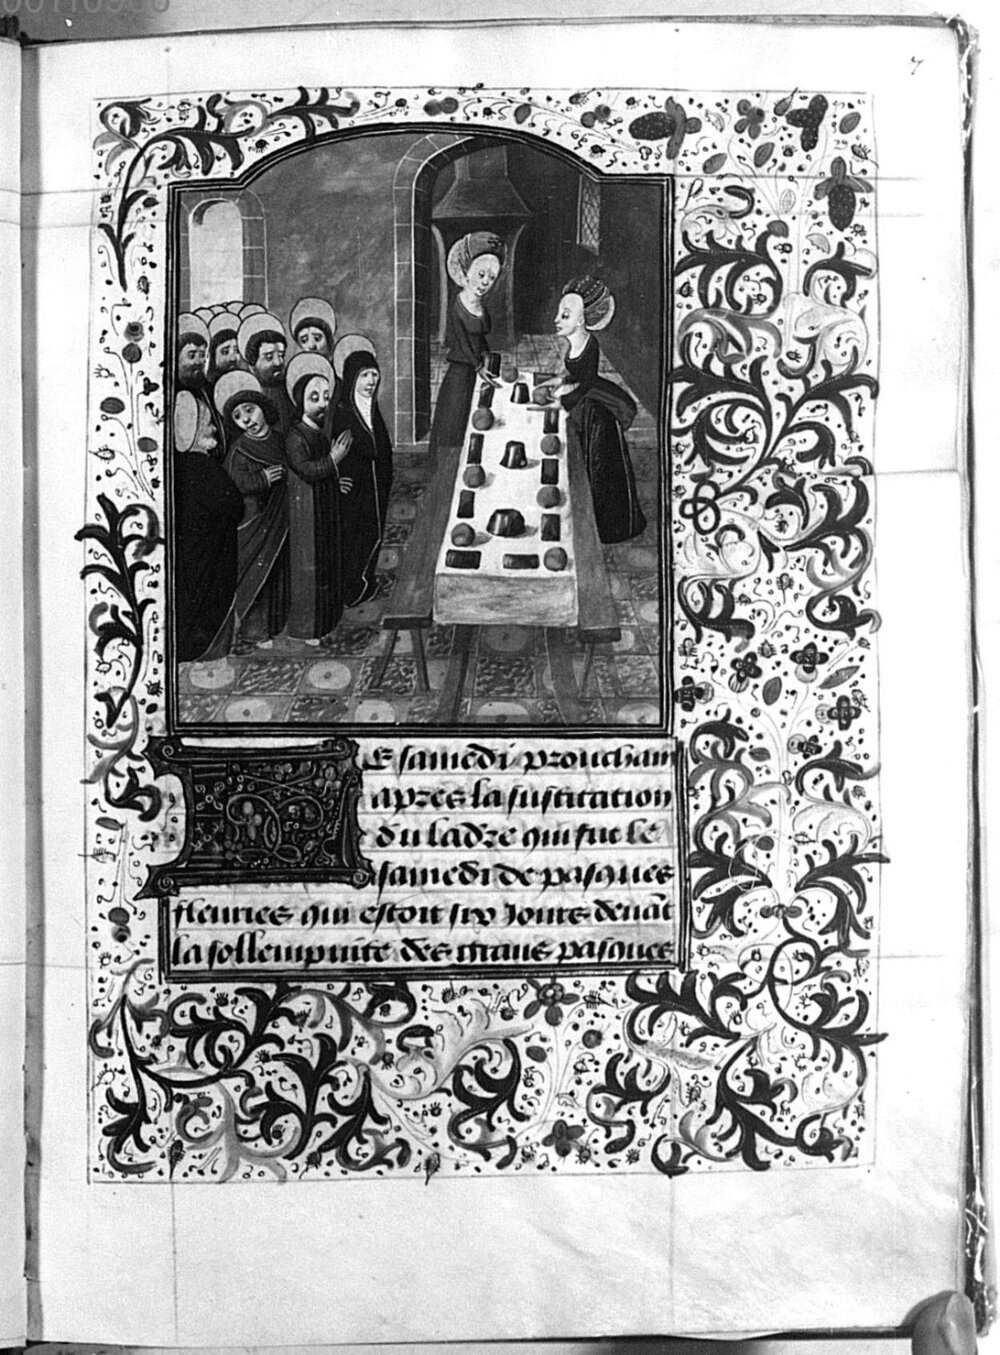 00110968
7
LE samedi prouchain
apres la suscitation
du ladre qui fut le
samedi de pasques
flouries qui estoit six Jours deuāt
la sollempnite des grans pasques